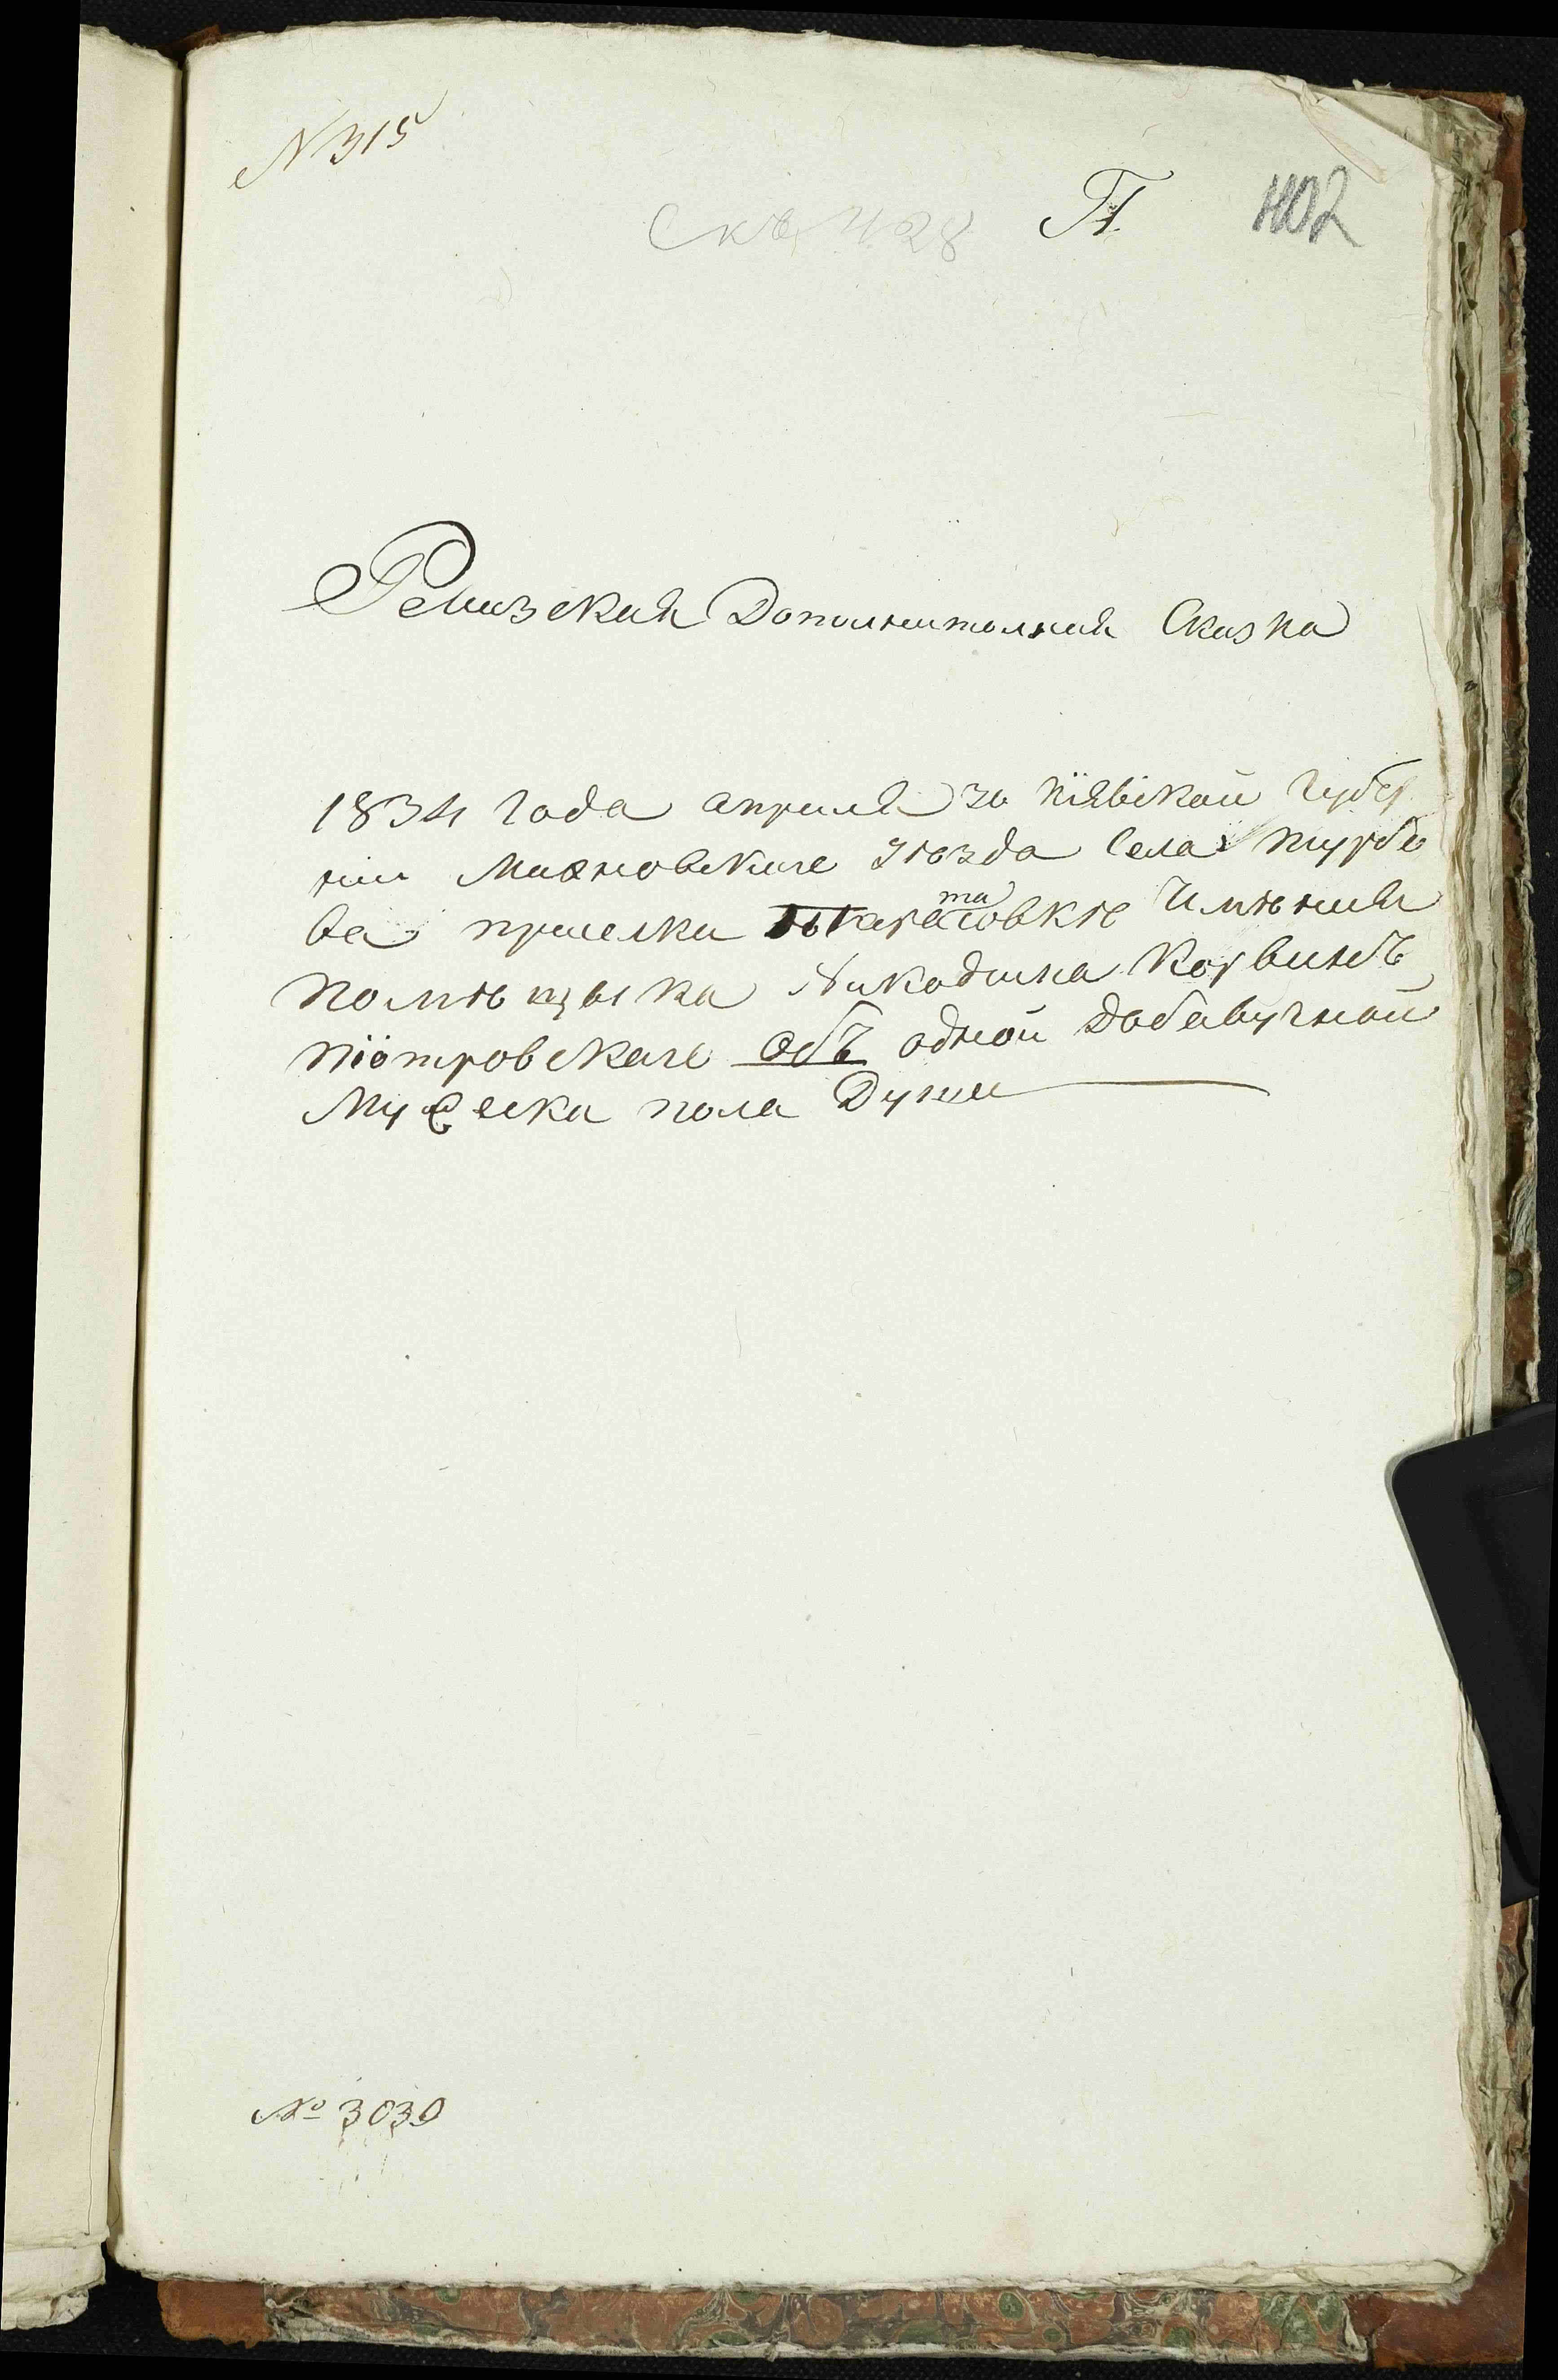 N 315
Скъ 428 П. 1102
Ревизская Дополнителная Сказка
1834 года апреля 30 Кіевской Губер
нии Махновскаго Уезда Села Турбо
ва приселка таратовкѣ Имѣния
помѣщыка Никодима Корвинъ
піотровскаго Объ одной Добавучной
Мужеска пола Души
№ 3030